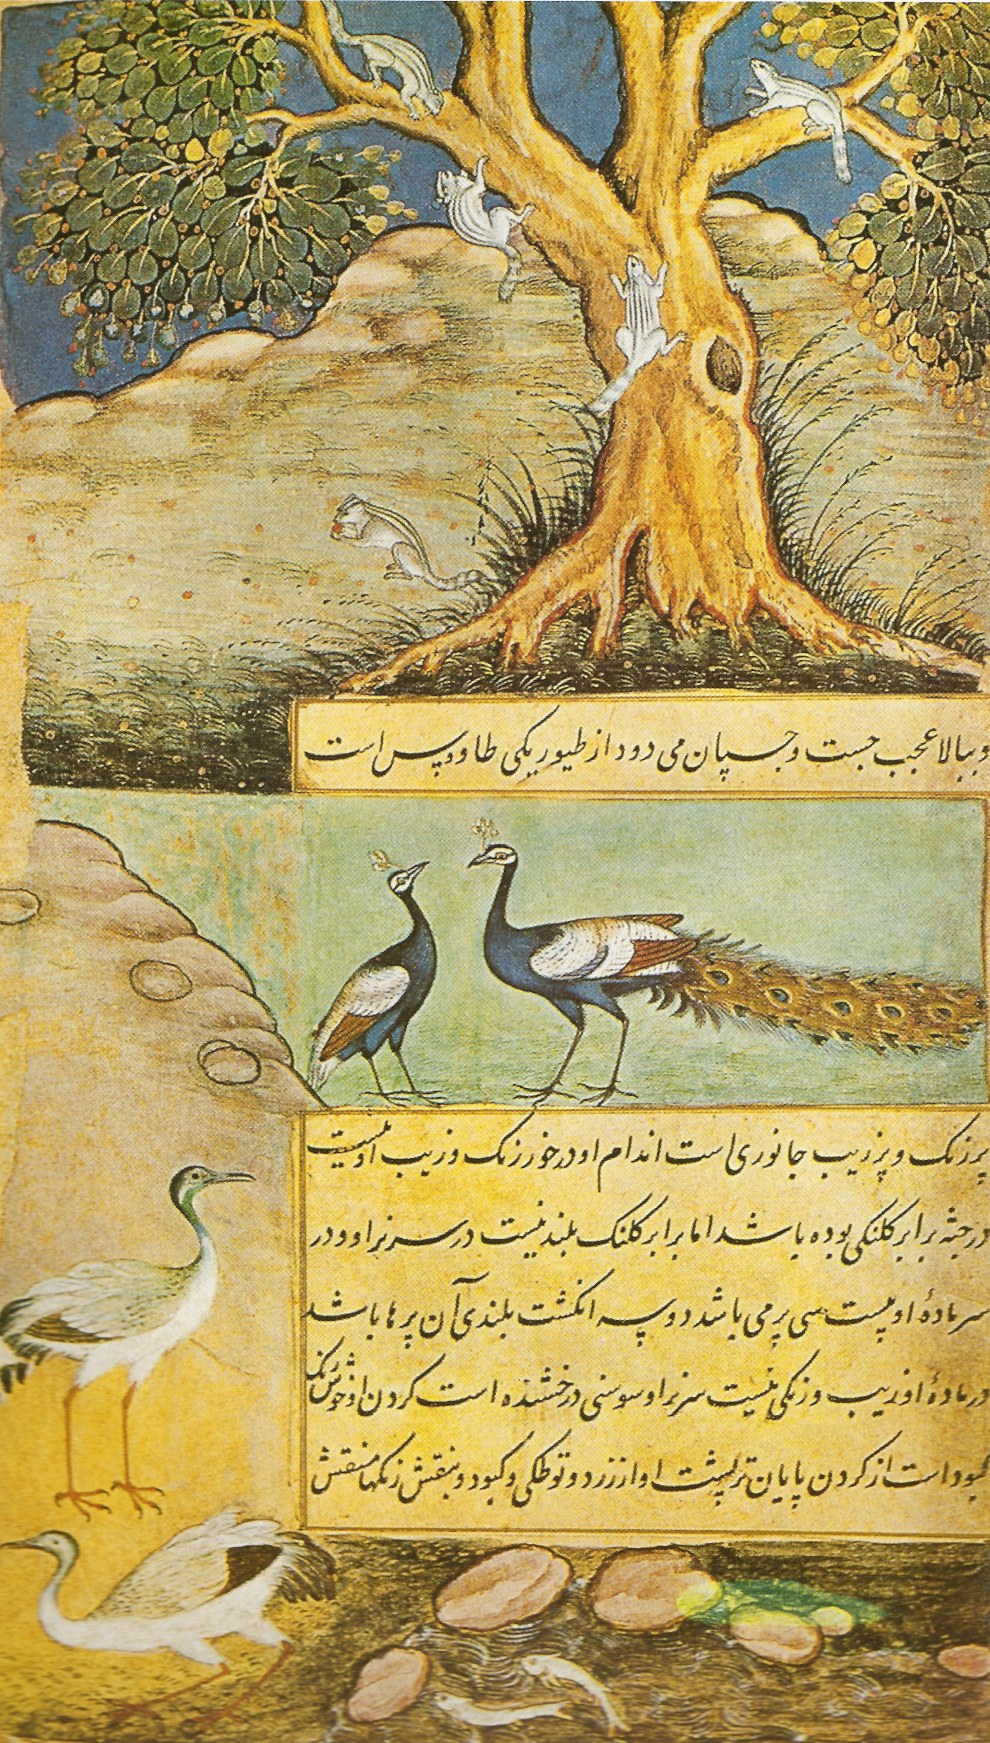 و ببالا عجب جست و جسپان می دود از طیور یکی طاوس است
پر زنک و پر زیب جانوری است اندام او در خور زنک و زیب او نیست
در جثه برابر کلنکی بوده باشد اما برابر کلنک بلند نیست در سر نر او و در
سر مادهٔ او بیست سی پر می باشد دو سه انکشت بلندی آن پرها باشد
در مادهٔ او زیب و زنکی نیست سر نر او سوسنی درخشنده است کردن او خوش زنک
کبود است از کردن پایان تر پشت او از زرد و توطکی و کبود و بنفش زنکها منقش